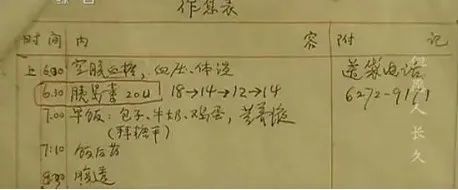 作息表
时间 内 容 附 记
上 6:00 空腹血糖，血压、体温 送餐电话
6:30 胰岛素 20u 18→14→12→14 6272-9171
7:00 早饭：包子、牛奶、鸡蛋，营养液
(拜糖平)
7:10 饭后药
8:30
人长久